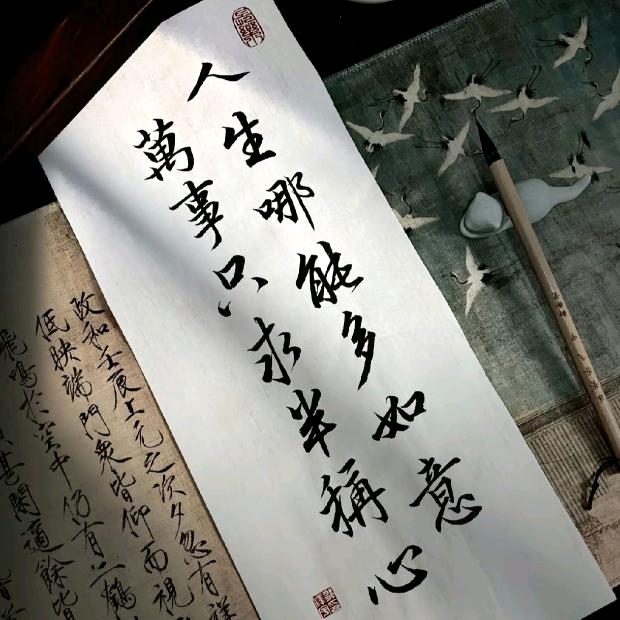 人生哪能多如意
萬事只求半稱心
政和壬辰上元之次夕忽有祥
低映端門衆皆仰而視
飛鳴於空中仍有二鶴
甚閑適餘皆